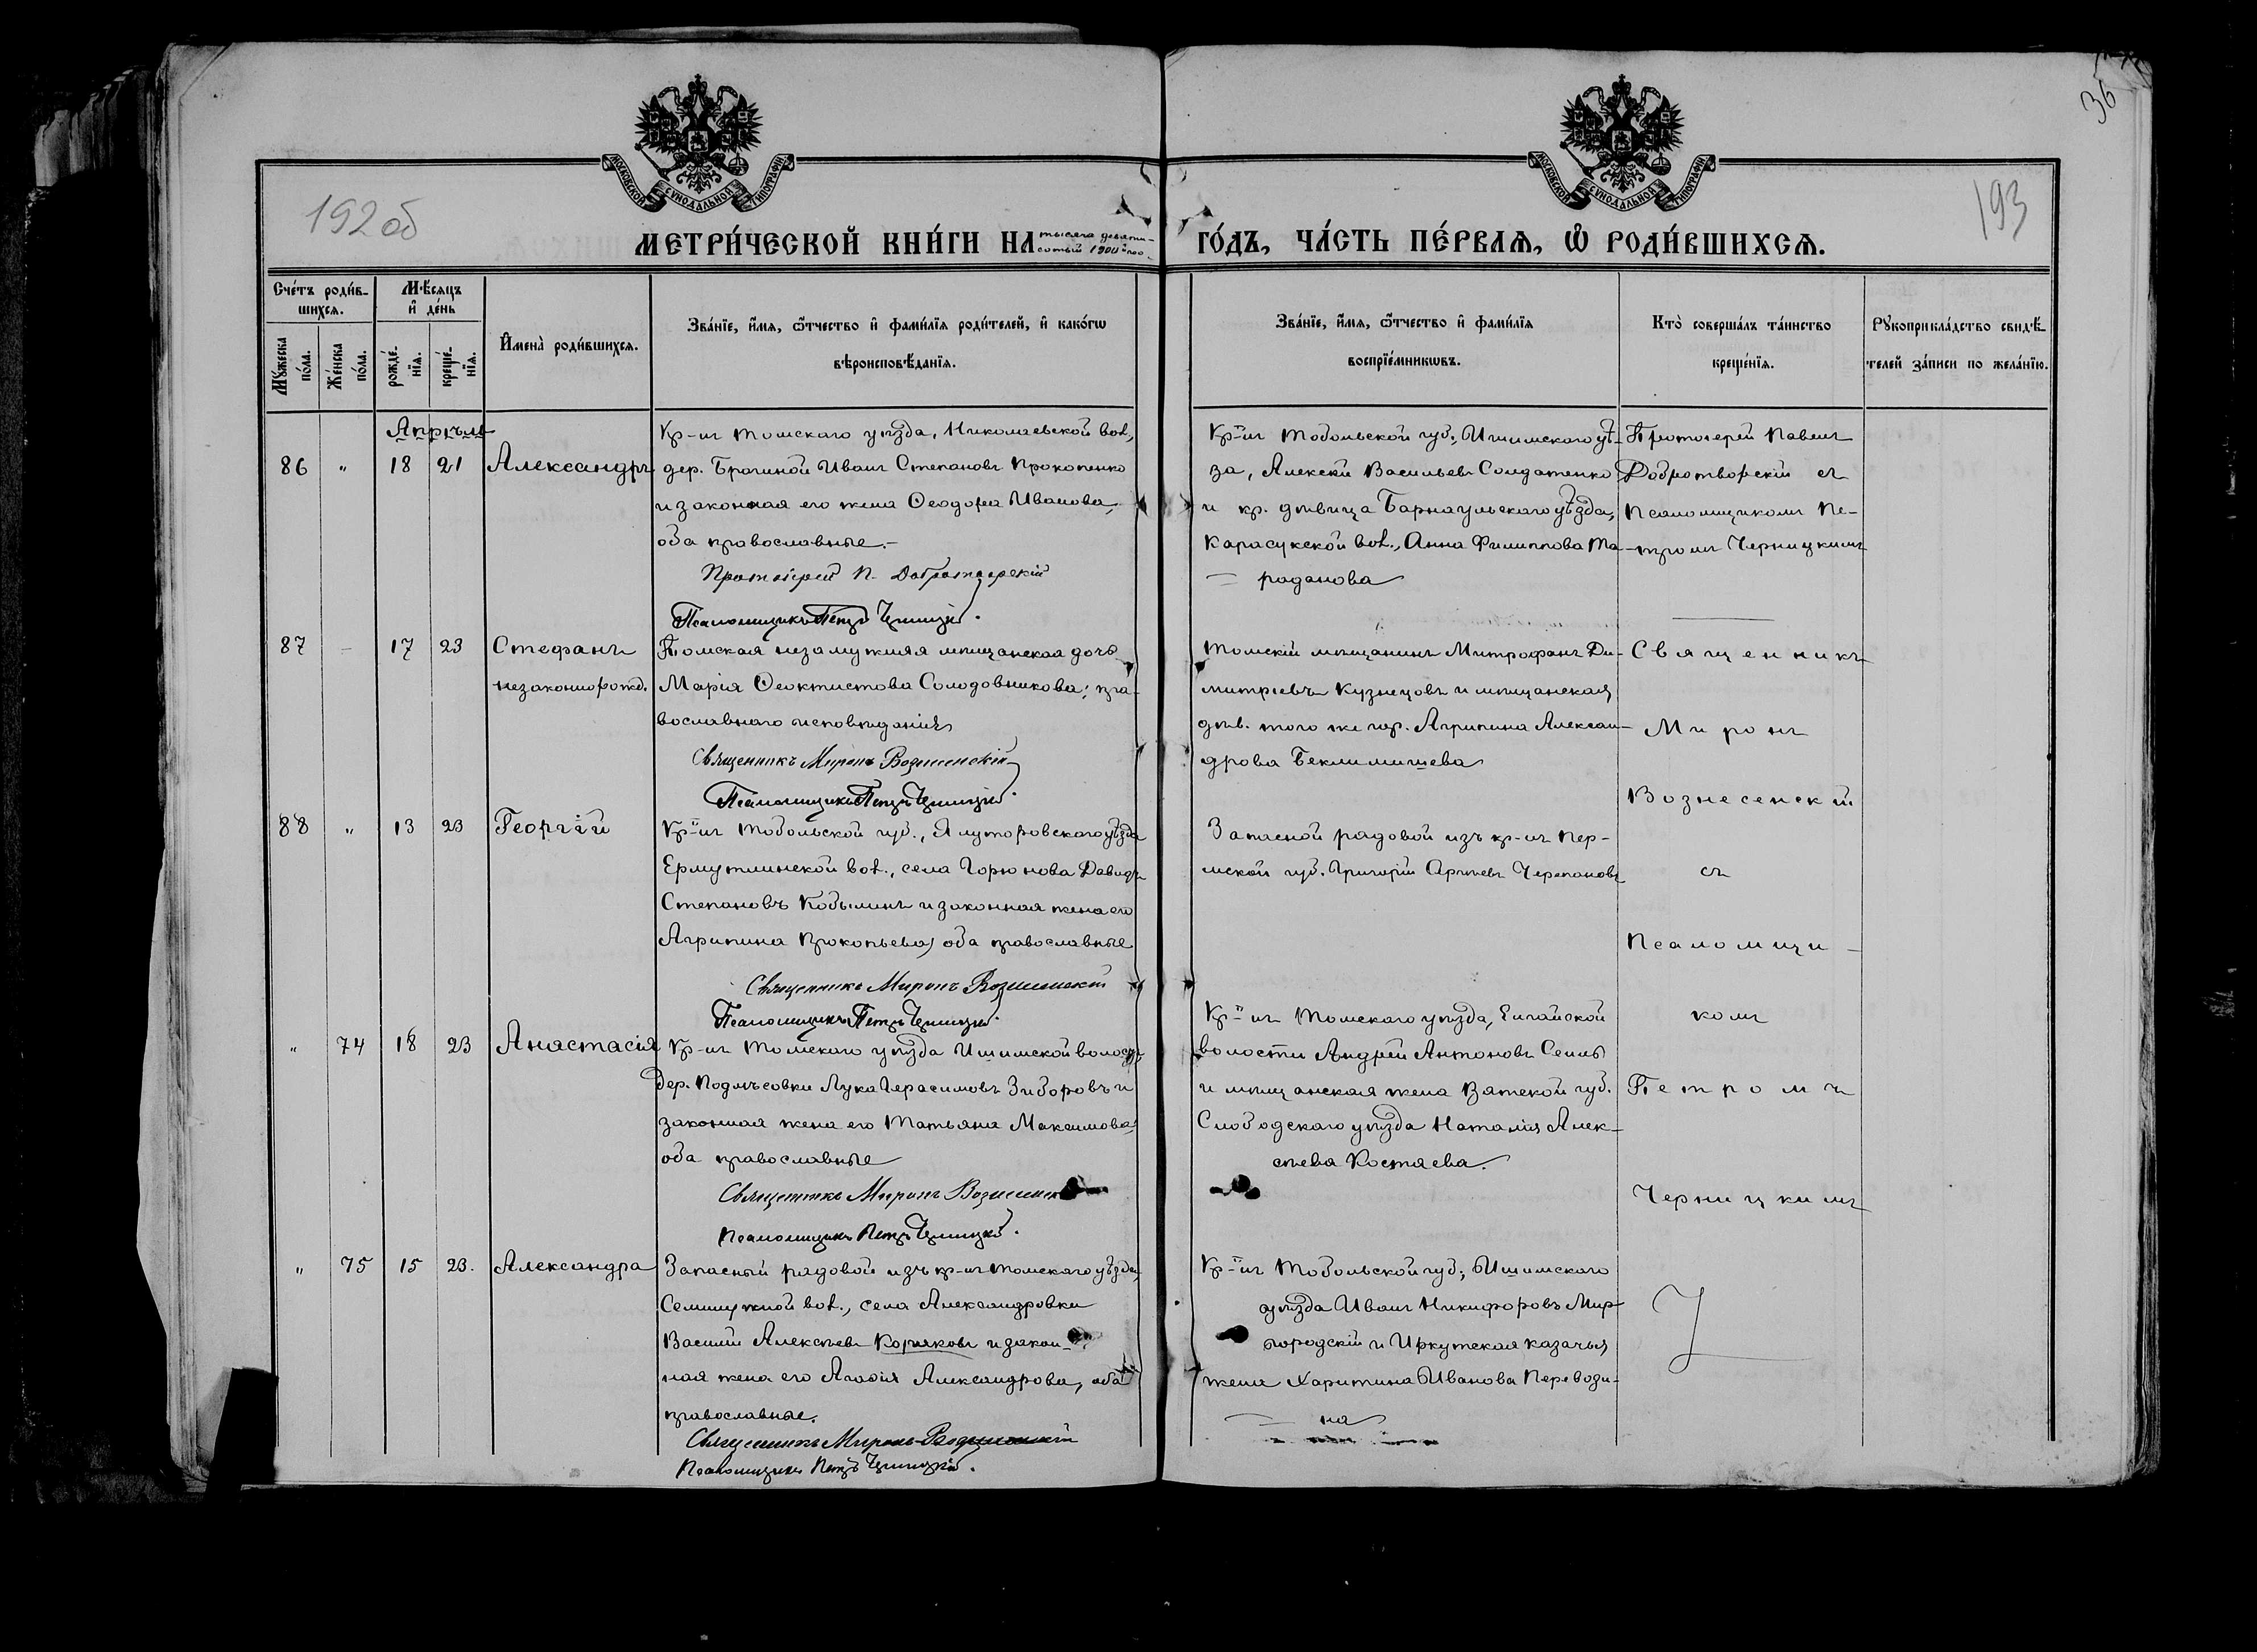 36
МОСКОВСКОЙ СУНОДАЛЬНОЙ ТИПОГРАФІИ
МОСКОВСКОЙ СУНОДАЛЬНОЙ ТИПОГРАФІИ
192об
193
МЕТРИ́ЧЕСКОЙ КНИ́ГИ НА тысяча девяти-
сотый 1900й
ГО́ДЪ, ЧА́СТЬ ПЕ́РВАЯ, Ѡ РОДИ́ВШИХСЯ.
Сче́тъ роди́в-
шихся.
Мѣ́сяцъ
и де́нь
Мꙋжеска
по́ла.
Же́нска
по́ла.
рожде́-
нїя.
креще́-
нїя.
Имена̀ роди́вшихся.
Зва́нїе, и́мя, ѻ́тчество и фами́лїя роди́телей, и како́гѡ
вѣроисповѣ́данїя.
Зва́нїе, и́мя, ѻ́тчество и фами́лїя
воспрїе́мникѡвъ.
Кто̀ соверша́лъ та́инство
креще́нїя.
Рꙋкоприкла́дство свидѣ́-
телей за́писи по жела́нїю.
Апрѣль
86 " 18 21 Александръ
Кр-нъ Томскаго уѣзда, Николаевской вол.,
дер. Брагиной Иванъ Степановъ Прокопенко
и законная его жена Ѳеодора Иванова,
оба православные.-
Протоіерей П. Добротворскій
Псаломщикъ Петръ Черницкій.
Кр-нъ Тобольской губ., Ишимскаго уѣ-
за, Алексѣй Васильевъ Солдатенко
и кр. дѣвица Барнаульскаго уѣзда,
Карасукской вол., Анна Филиппова Та-
раданова
Протоіерей Павелъ
Добротворскій съ
Псаломщикомъ Пе-
тромъ Черницкимъ
87 - 17 23 Стефанъ
незаконнорожд.
Томская незамужняя мѣщанская дочь
Марія Ѳеоктистова Солодовникова; пра-
вославнаго исповѣданія
Священникъ Миронъ Вознесенскій
Псаломщикъ Петръ Черницкій.
Томскій мѣщанинъ Митрофанъ Ди-
митріевъ Кузнецовъ и мѣщанская
дѣв. того же гор. Агрипина Алексан-
дрова Беклимишева
Священникъ
Миронъ
Вознесенскій
съ
Псаломщи-
комъ
Петромъ
Черницкимъ
88 " 13 23 Георгій
Кр-нъ Тобольской губ., Ялуторовскаго уѣзда
Ермутлинской вол., села Горюнова Давидъ
Степановъ Кобылинъ и законная жена его
Агрипина Прокопьева, оба православные
Священникъ Миронъ Вознесенскій
Псаломщикъ Петръ Черницкій.
Запасной рядовой изъ кр-нъ Пер-
мской губ. Григорій Артѣевъ Черепановъ
" 74 18 23 Анастасія
Кр-нъ Томскаго уѣзда Ишимской волости,
дер. Подъѣсовки Лука Герасимовъ Зиборовъ и
законная жена его Татьяна Максимова,
оба православные
Священникъ Миронъ Вознесенск
Псаломщикъ Петръ Черницкій.
Кр-нъ Томскаго уѣзда, Елгайской
волости Андрей Антоновъ Сенль
и мѣщанская жена Вятской губ.
Слободскаго уѣзда Наталія Алек-
сѣева Костяева.
" 75 15 23. Александра
Запасный рядовой изъ кр-нъ Томскаго уѣзда,
Семилужной вол., села Александровки
Василій Алексѣевъ Коряковъ и закон-
ная жена его Агаѳія Александрова, оба
православные.
Священникъ Миронъ Вознесенскій
Псаломщикъ Петръ Черницкій.
Кр-нъ Тобольской губ., Ишимскаго
уѣзда Иванъ Никифоровъ Мир-
городскій и Иркутская казачья
жена Харитина Иванова Переводи-
на